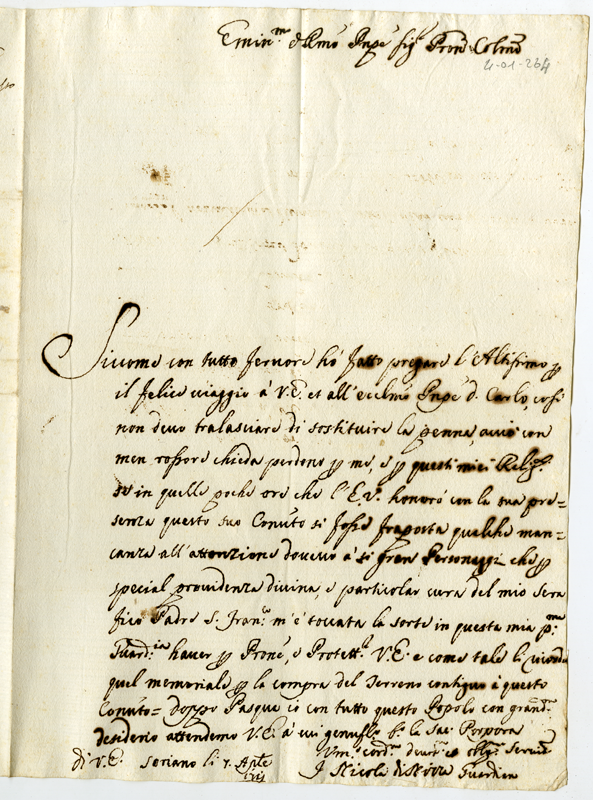 Emin.mo e Rmo Prñpe sig.r Pron Colmo
4-01-264
Siccome con tutto fervore hò fatto pregare l'Altissimo p
il felice viaggio à V.E. et all'ecclmo Prñpe d. Carlo, così
non devo tralasciare di sostituire la penna, acciò con
men rossore chieda perdono p me, e p questi miei Relig.si
se in quelle poche ore che l'E.V. honorò con la sua pre=
senza questo suo Convto si fosse fraposta qualche man=
canza all'attenzione dovuta à si gran Personaggi che p
special providenza divina, e particolar cura del mio sera
fico Padre S. Fran.co m'è toccata la sorte in questa mia p.ma
Guard.ia haver p Prone, e Protett.e V.E. e come tale li ricordo
quel memoriale p la compra del Terreno contiguo à questo
Convto= doppo Pasqua io con tutto questo Popolo con grand.mo
desiderio attendemo V.E. à cui genufl.o b.o la Sac. Porpora
Di V.E. Soriano li 7. Aple
Vm.e cord.mo devmo et oblig.mo Serv.e
F Nicola di Guardian